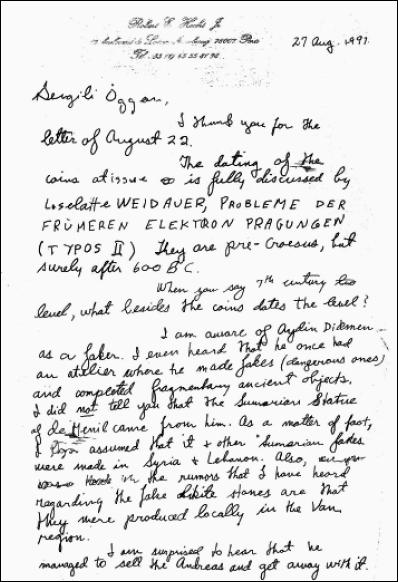 Robert E. Hecht Jr.
75007 Paris
27 Aug. 1997
Sevgili Özgen,
I thank you for the
letter of August 22.
The dating of the
coins at issue is fully discussed by
Liselotte WEIDAUER, PROBLEME DER
FRÜHEREN ELEKTRON PRAGUNGEN
(TYPOS II) They are pre-Croesus, but
surely after 600 BC.
When you say 7th century
level, what besides the coins dates the level?
I am aware of Aydin Dikmen
as a faker. I even heard that he once had
an atelier where he made fakes (dangerous ones)
and completed fragmentary ancient objects.
I did not tell you that the Sumarian Statue
of de Menil came from him. As a matter of fact,
I assumed that it & other Sumarian fakes
were made in Syria & Lebanon. Also,
the rumors that I have heard
regarding the fake stones are that
they were produced locally in the Van
region.
I am surprised to hear that he
managed to sell the Andreas and get away with it.